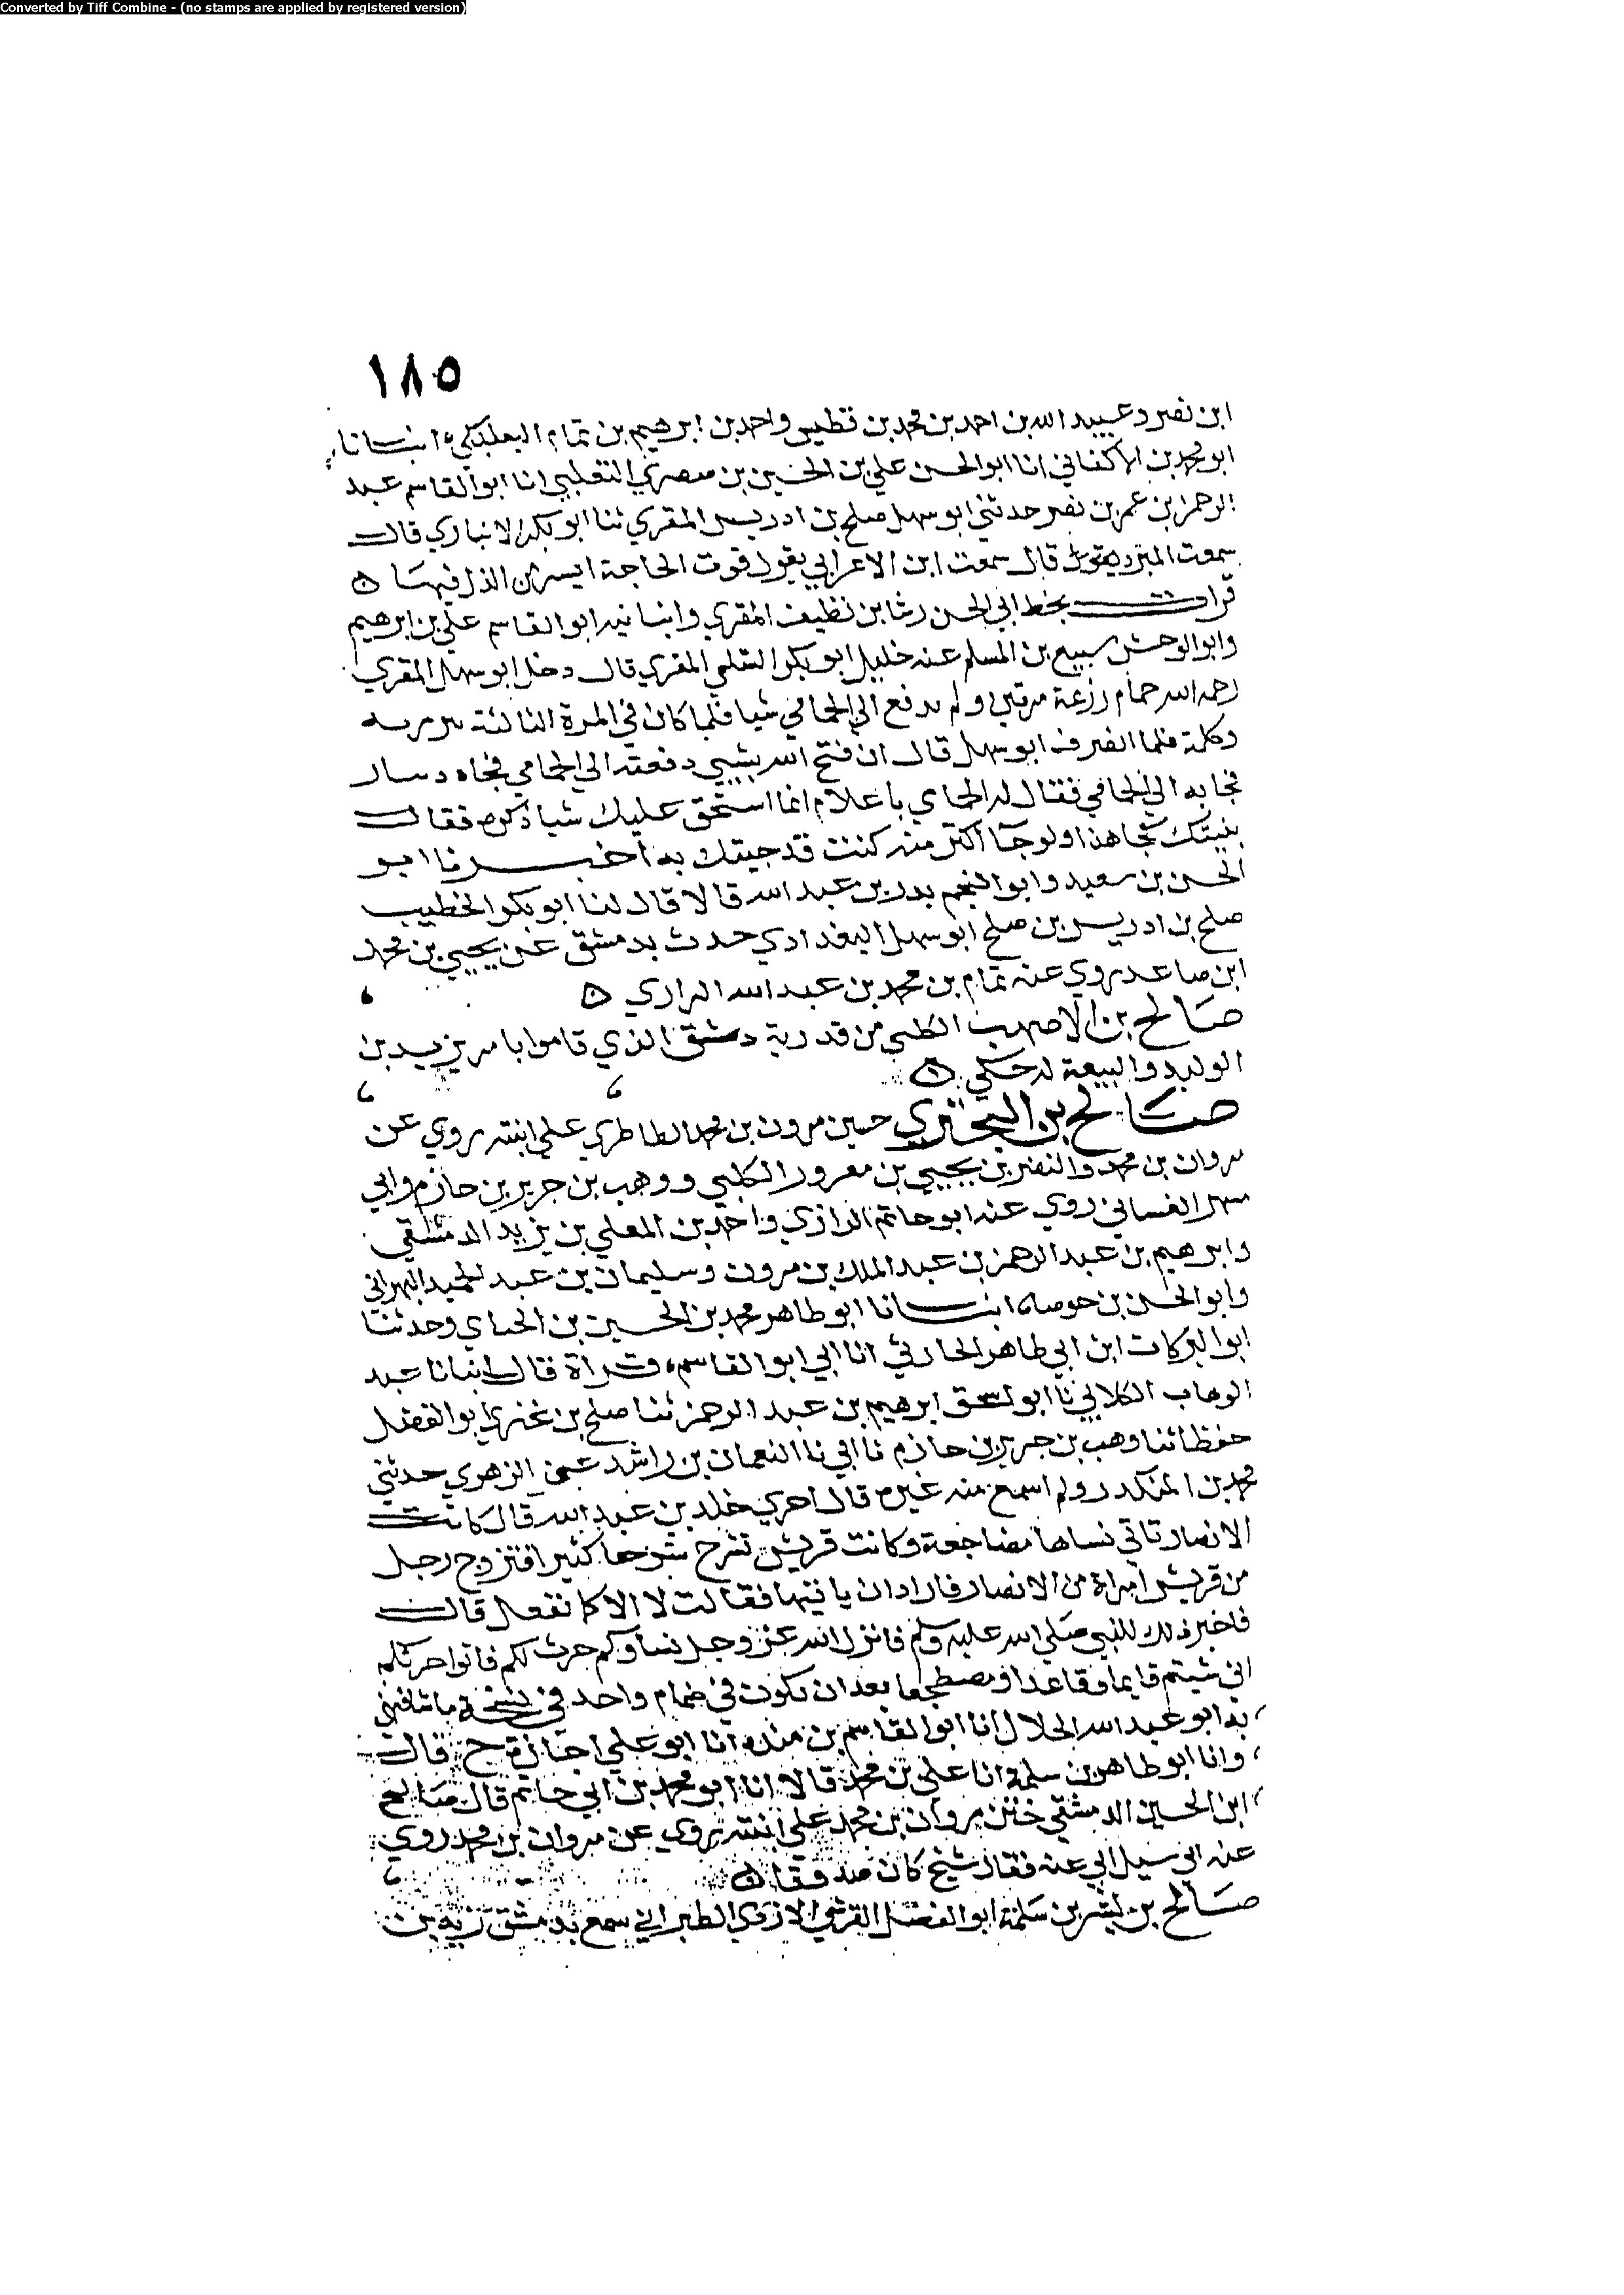 Converted by Tiff Combine - (no stamps are applied by registered version)
١٨٥
ابن نصر وعبيد الله بن احمد بن محمد بن فطيس واحمد بن ابرهيم بن تمام البعلبكي انبانا
ابو محمد بن الاكفاني انا ابو الحسن علي بن الحسين بن صصري التغلبي انا ابو القاسم عبد
الرحمن بن عمر بن نصر حدثني ابو سهل صلح بن ادريس المقري ثنا ابو بكر الانباري قال
سمعت المبرد يقول قال سمعت ابن الاعرابي يقول فوت الحاجة ايسر من الذل فيها
قرات بخط ابي الحسن رشا بن نظيف المقري وانبانيه ابو القاسم علي بن ابرهيم
وابو الوحش سبيع بن المسلم عنه خليل ابو بكر السلمي المقري قال دخل ابو سهل المقري
رحمه الله حمام مرتين ولم يدفع الي الحمامي شيا فلما كان في المرة الثالثة
وكلمه فلما انصرف ابو سهل قال ان فتح الله بشيي دفعته الي الحمامي فجاه دينار
فجا به الي الحمامي فقال له الحمامي يا غلام انما استحق عليك شيا فقال
بنيتك جا هذا ولو جا اكثر منه كنت قد جيتك به اخبرنا ابو
الحسن بن سعيد وابو النجم بدر بن عبد الله قالا قال لنا ابو بكر الخطيب
صلح بن ادريس بن صلح ابو سهل البغدادي حدث بدمشق عن يحيي بن محمد
ابن صاعد روي عنه تمام بن محمد بن عبد الله الرازي
صالح بن الاصهب الكلبي من قدرية دمشق الذي قاموا بامر يزيد بن
الوليد والبيعة له حكي
صالح بن البختري حسين مرون بن محمد الطاطري علي ابنته روي عن
مروان بن محمد والنضر بن يحيي بن معرور الكلبي ووهب بن جرير بن حازم وابي
مسهر الغساني روي عنه ابو حاتم الرازي واحمد بن المعلي بن يزيد الدمشقي
وابرهيم بن عبد الرحمن بن عبد الملك بن مرون وسليمان بن عبد الحميد البهراني
وابو الحسن بن جوصا انبانا ابو طاهر محمد بن الحسين بن الحناي وحدثنا
ابو البركات ابن ابي طاهر الحارثي انا ابي ابو القاسم قراة قال انبانا عبد
الوهاب الكلابي نا ابو اسحق ابرهيم بن عبد الرحمن ثنا صلح بن بختري ابو الفضل
حفظا ثنا وهب بن جرير بن حازم نا ابي نا النعمان بن راشد عن الزهري حدثني
محمد بن المنكدر ولم اسمع منه غيره قال خلد بن عبد الله قال كانت
الانصار تاتي نساها مضاجعة وكانت قريش تشرح شرحا كثيرا فتزوج رجل
من قريش امراة من الانصار فاراد ان ياتيها فقالت لا الا كما نفعل قال
فاخبر ذلك للنبي صلي الله عليه وسلم فانزل الله عز وجل نساوكم حرث لكم فاتوا حرثكم
اني شيتم قايما وقاعدا ومضطجعا بعد ان يكون في صمام واحد في نسخة ما شافهني
به ابو عبد الله الخلال انا ابو القاسم بن منده انا ابو علي اجازة ح قال
وانا ابو طاهر بن سلمة انا علي بن محمد قالا انا ابو محمد بن ابي حاتم قال صالح
ابن الحسين الدمشقي ختن مروان بن محمد علي ابنته روي عن مروان بن محمد روي
عنه ابي سيل ابي عنه فقال شيخ كان صدوقا
صالح بن بشر بن سلمة ابو الفضل القرشي الازدي الطبراني سمع بدمشق بن